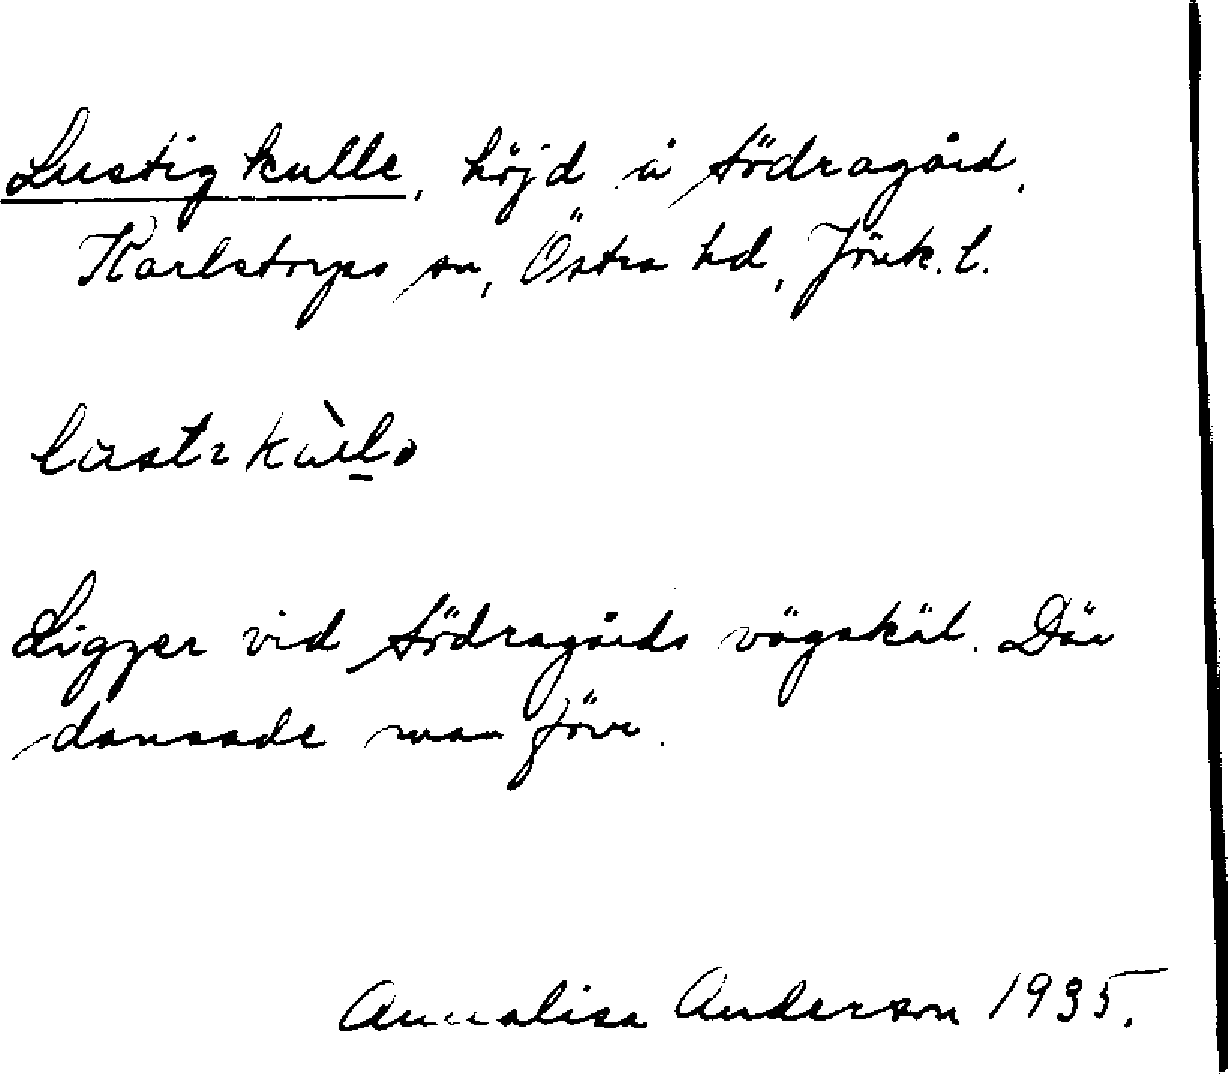 Lustigkulle, höjd å Södragård,
Karlstorps sn, Östra hd, Jönk. l.
Ligger vid Södragårds vägskäl. Där
dansade man förr.
Annalisa Anderson 1935.